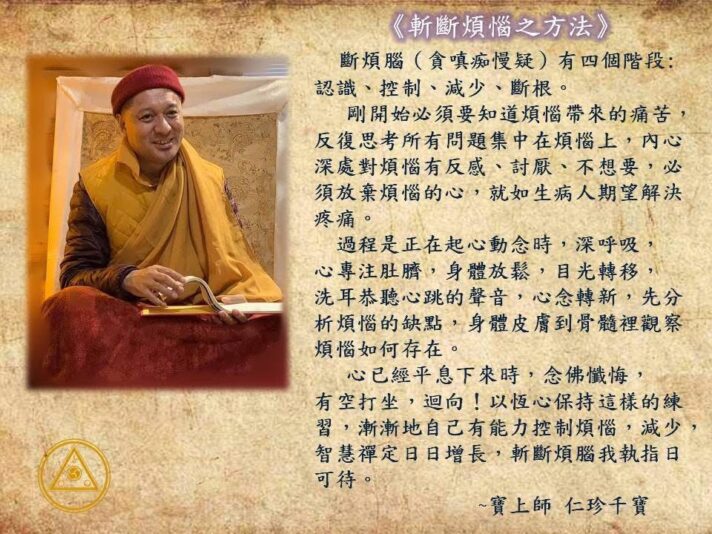 《斬斷煩惱之方法》
斷煩腦（貪嗔痴慢疑）有四個階段:
認識、控制、減少、斷根。
剛開始必須要知道煩惱帶來的痛苦，
反復思考所有問題集中在煩惱上，內心
深處對煩惱有反感、討厭、不想要，必
須放棄煩惱的心，就如生病人期望解決
疼痛。
過程是正在起心動念時，深呼吸，
心專注肚臍，身體放鬆，目光轉移，
洗耳恭聽心跳的聲音，心念轉新，先分
析煩惱的缺點，身體皮膚到骨髓裡觀察
煩惱如何存在。
心已經平息下來時，念佛懺悔，
有空打坐，迴向！以恆心保持這樣的練
習，漸漸地自己有能力控制煩惱，減少，
智慧禪定日日增長，斬斷煩腦我執指日
可待。
~寶上師 仁珍千寶